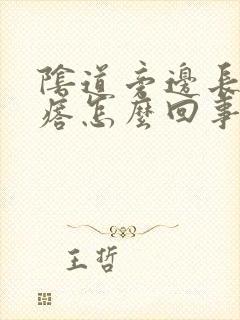 陰道旁邊長
痞怎麼回事
王哲